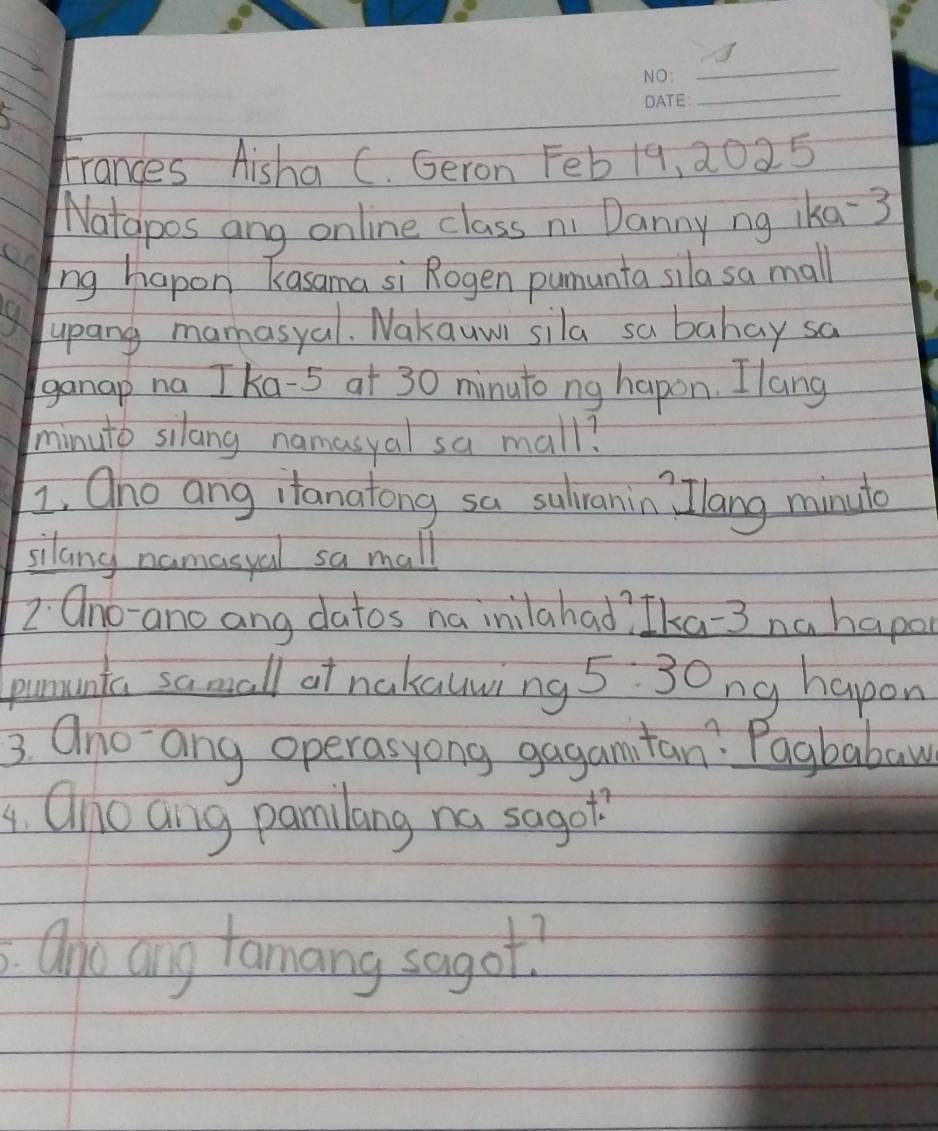 NO:
DATE:
Frances Aisha C. Geron Feb 19, 2025
Natapos ang online class ni Danny ng ika-3
ng hapon kasama si Rogen pumunta sila sa mall
upang mamasyal. Nakauwi sila sa bahay sa
ganap na Ika-5 at 30 minuto ng hapon. Ilang
minuto silang namasyal sa mall?
1. Ano ang itanatong sa suliranin? Ilang minuto
silang namasyal sa mall
2. Ano-ano ang datos na inilahad? Ika-3 na hapon
pumunta sa mall at nakauwi ng 5:30 ng hapon
3. Ano-ang operasyong gagamitan? Pagbabaw
4. Ano ang pamilang na sagot?
5. Ano ang tamang sagot?